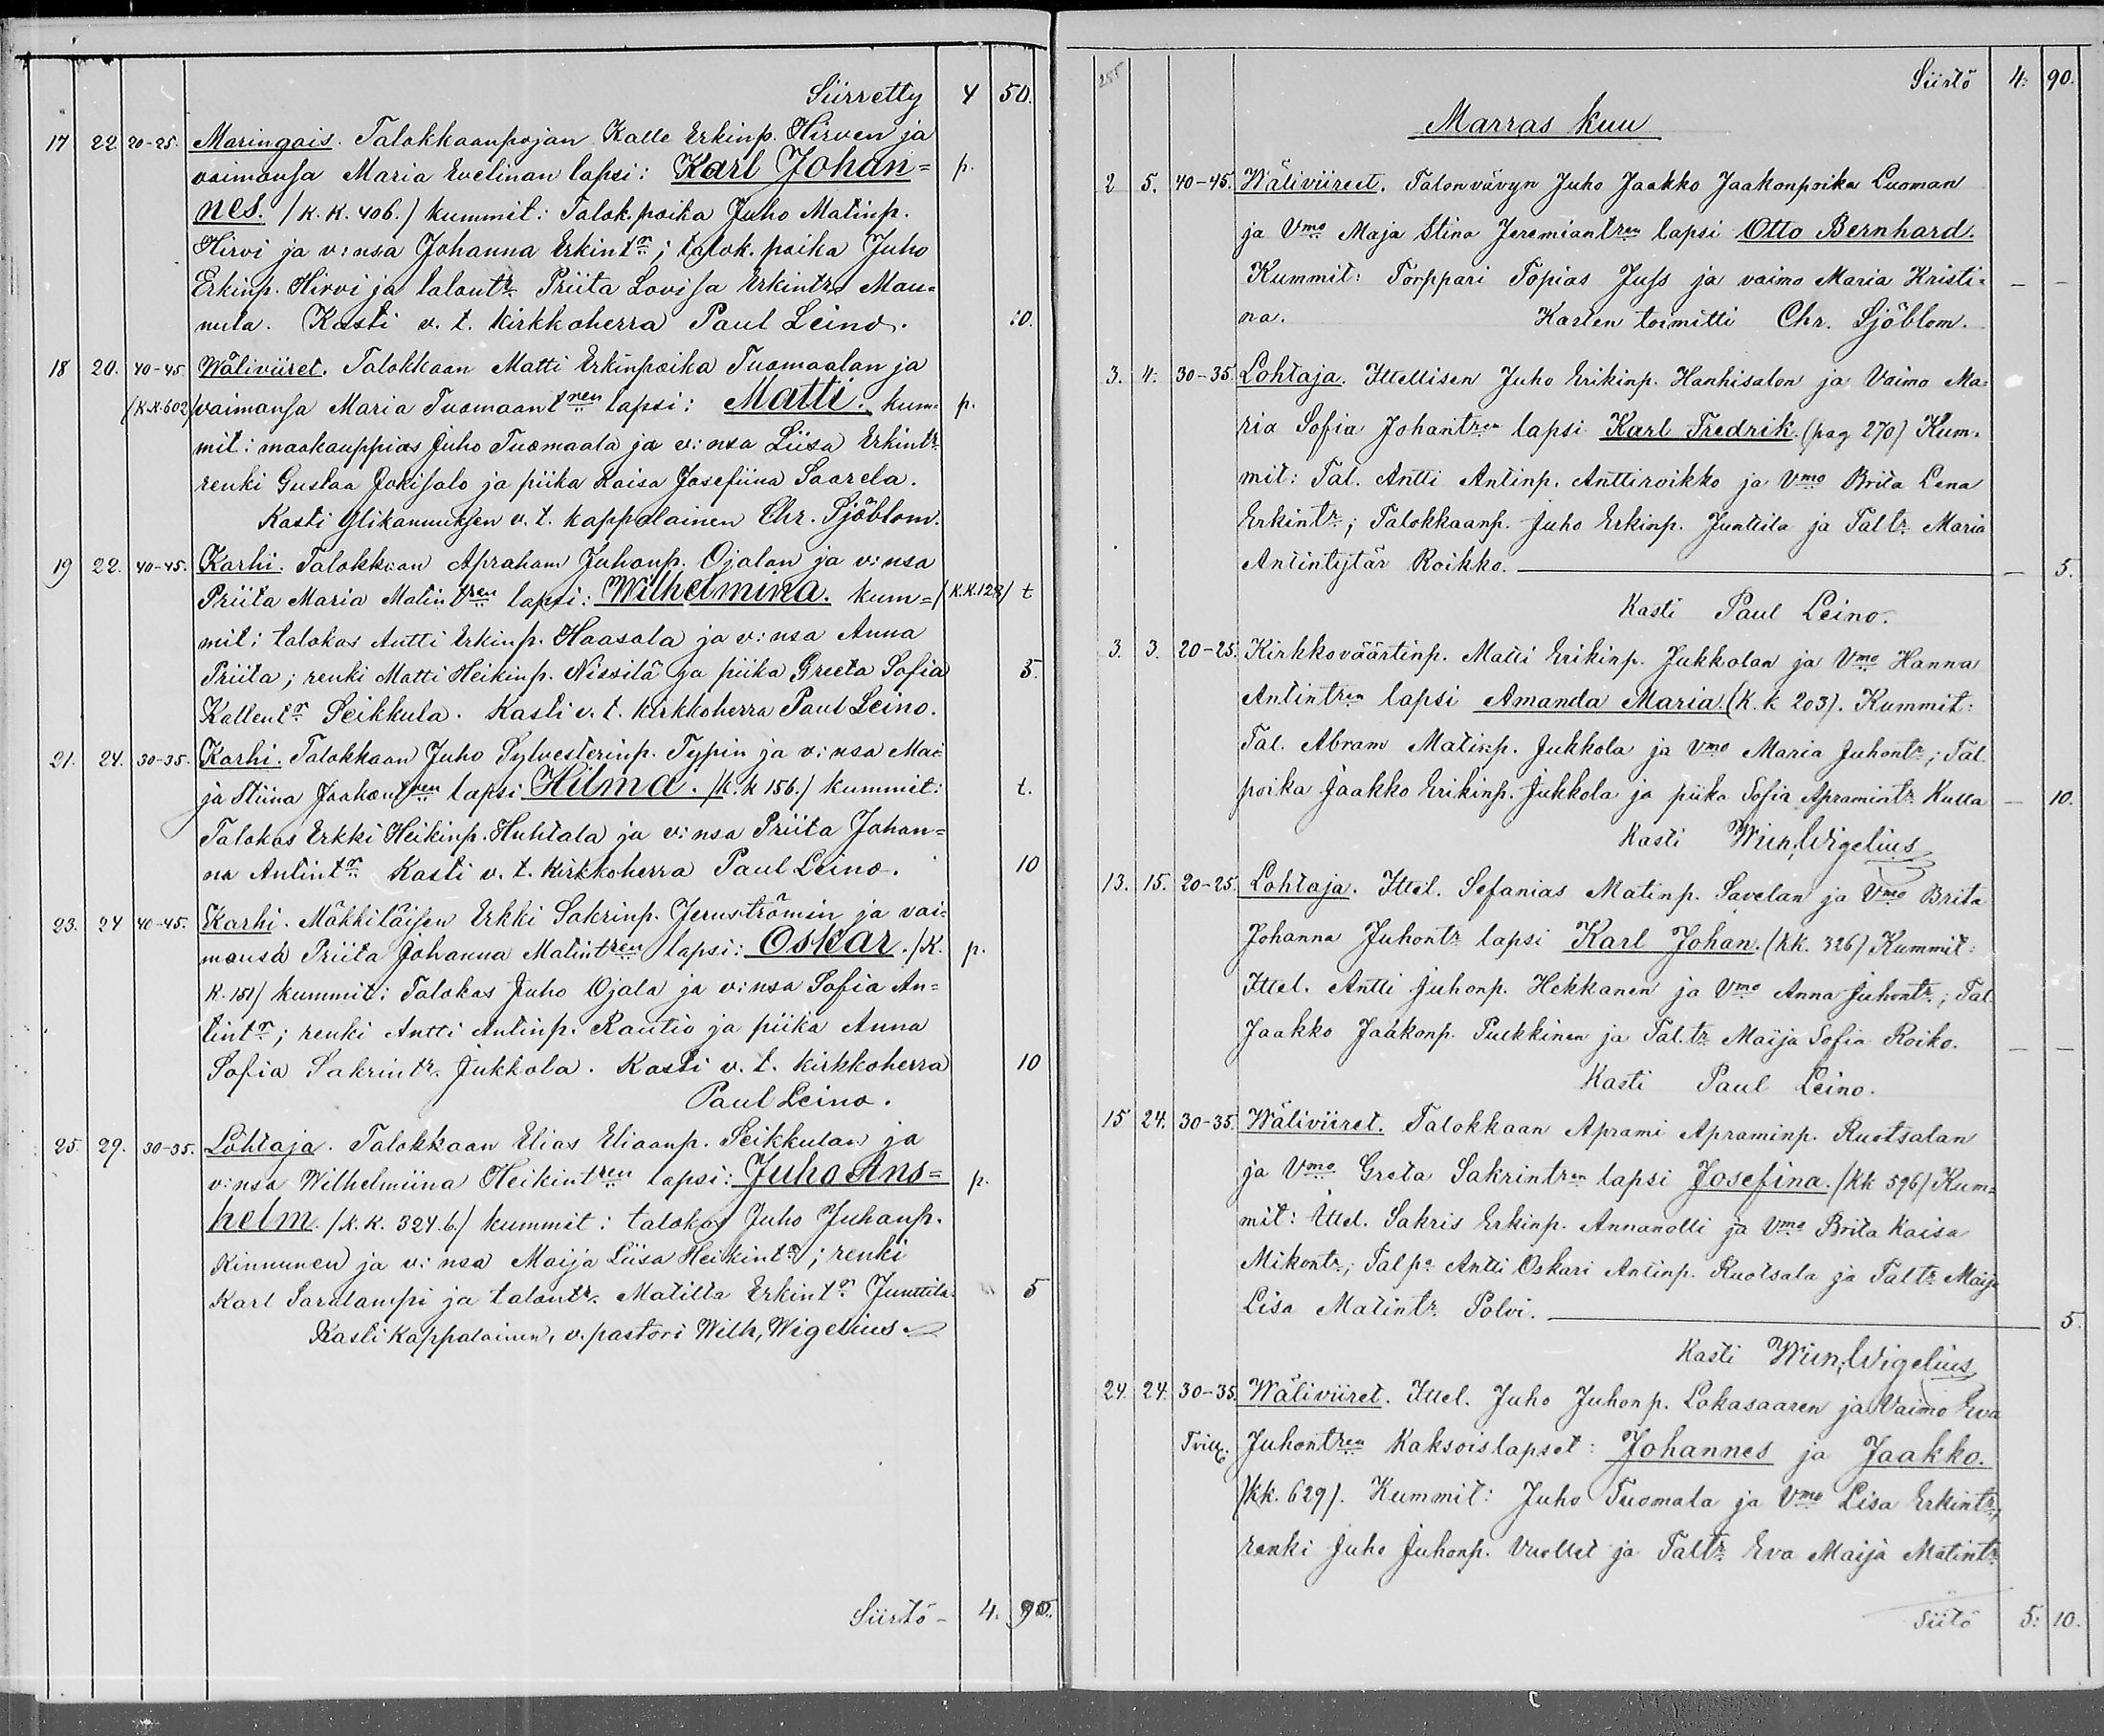 Siirretty 4 50.
17 22 20-25. Maringais. Talokkaanpojan Kalle Erkinp. Hirven ja
vaimonsa Maria Evelinan lapsi: Karl Johan= p.
nes. /K.K. 406./ kummit: Talok. poika Juho Matinp.
Hirvi ja v:nsa Johanna Erkintr; talok. poika Juho
Erkinp. Hirvi ja talontr. Priita Lovisa Erkintr. Mau=
nula. Kasti v. t. kirkkoherra Paul Leino. 10.
18 20. 40-45 Wäliviiret. Talokkaan Matti Erkinpoika Tuomaalan ja
/K.K. 602/ vaimonsa Maria Tuomaantren lapsi: Matti. kum= p.
mit: maakauppias Juho Tuomaala ja v:nsa Liisa Erkintr.
renki Gustaa Jokisalo ja piika Kaisa Josefiina Saarela.
Kasti Ylikannuksen v. t. kappalainen Chr. Sjöblom.
19 22. 40-45. Karhi. Talokkaan Apraham Juhonp. Ojalan ja v:nsa
Priita Maria Matintren lapsi: Wilhelmina. kum= /K.K. 128/ t
mit: talokas Antti Erkinp. Haasala ja v:nsa Anna
Priita; renki Matti Heikinp. Nissilä ja piika Greeta Sofia 5.
Kallentr Seikkula. Kasti v. t. kirkkoherra Paul Leino.
21. 24. 30-35. Karhi. Talokkaan Juho Sylvesterinp. Typin ja v:nsa Mai=
ja Stiina Jaakontren lapsi Hilma. /K.K 156./ kummit: t.
Talokas Erkki Heikinp. Huhtala ja v:nsa Priita Johan=
na Antintr. Kasti v. t. kirkkoherra Paul Leino. 10
23. 24 40-45. Karhi. Mäkkiläisen Erkki Sakrinp. Jernströmin ja vai=
monsa Priita Johanna Matintren lapsi: Oskar. /K. p.
K. 151/ kummit: Talokas Juho Ojala ja v:nsa Sofia An=
tintr; renki Antti Antinp. Rautio ja piika Anna
Sofia Sakrintr. Jukkola. Kasti v. t. kirkkoherra 10
Paul Leino.
25. 29. 30-35. Lohtaja. Talokkaan Elias Eliaanp. Seikkulan ja
v:nsa Wilhelmiina Heikintren lapsi: Juho Ans= p.
helm. /K.K. 324.6./ kummit: talokas Juho Juhonp.
Kinnunen ja v:nsa Maija Liisa Heikintr; renki
Karl Saralampi ja talontr. Matilta Erkintr Junttila. 5
Kasti kappalainen, v. pastori Wilh, Wigelius
Siirtö - 4. 90.
255 Siirtö 4: 90.
Marras kuu
2 5. 40-45. Wäliviireet. Talonvävyn Juho Jaakko Jaakonpoika Luoman
ja Vmo Maja Stina Jeremiantren lapsi Otto Bernhard.
Kummit: Torppari Topias Juss ja vaimo Maria Kristi= - -
na. Karlen toimitti Chr. Sjöblom.
3. 4. 30-35. Lohtaja. Ittellisen Juho Erikinp. Hanhisalon ja Vaimo Ma=
ria Sofia Johantren lapsi Karl Fredrik. (pag 270) Kum=
mit: Tal. Antti Antinp. Anttiroikko ja Vmo Brita Lena
Erkintr; Talokkaanp. Juho Erkinp. Junttila ja Taltr. Maria
Antintytär Roikko. - 5.
Kasti Paul Leino.
3. 3. 20-25. Kirkkoväärtinp. Matti Erikinp. Jukkolan ja Vmo Hanna
Antintren lapsi Amanda Maria. (K.k 203). Kummit:
Tal. Abram Matinp. Jukkola ja Vmo Maria Juhontr; Tal.
poika Jaakko Erikinp. Jukkola ja piika Sofia Apramintr. Kulla - 10.
Kasti Wilh, Wigelius
13. 15. 20-25. Lohtaja. Ittel. Sefanias Matinp. Savelan ja Vmo Brita
Johanna Juhontr. lapsi Karl Johan. (kk. 326) Kummit:
Ittel. Antti Juhonp. Hekkanen ja Vmo Anna Juhontr; Tal.
Jaakko Jaakonp. Pulkkinen ja Tal.tr. Maija Sofia Roiko. - -
Kasti Paul Leino.
15 24. 30-35. Wäliviiret. Talokkaan Aprami Apraminp. Ruotsalan
ja Vmo Greta Sakrintren lapsi Josefina. /kk 596/ Kum=
mit: Ittel. Sakris Erkinp. Annanolli ja Vmo Brita Kaisa
Mikontr; Talpa Antti Oskari Antinp. Ruotsala ja Taltr. Maija
Lisa Matintr. Polvi. 5.
Kasti Wilh, Wigelius
24. 24. 30-35. Wäliviiret. Ittel. Juho Juhonp. Lokasaaren ja Vaimo Eva
Tvill. Juhontren Kaksoislapset: Johannes ja Jaakko.
/kk. 629/. Kummit: Juho Tuomala ja Vmo Lisa Erkintr;
renki Juho Juhonp. Vuollet ja Taltr. Eva Maija Matintr.
Siitö 5: 10.